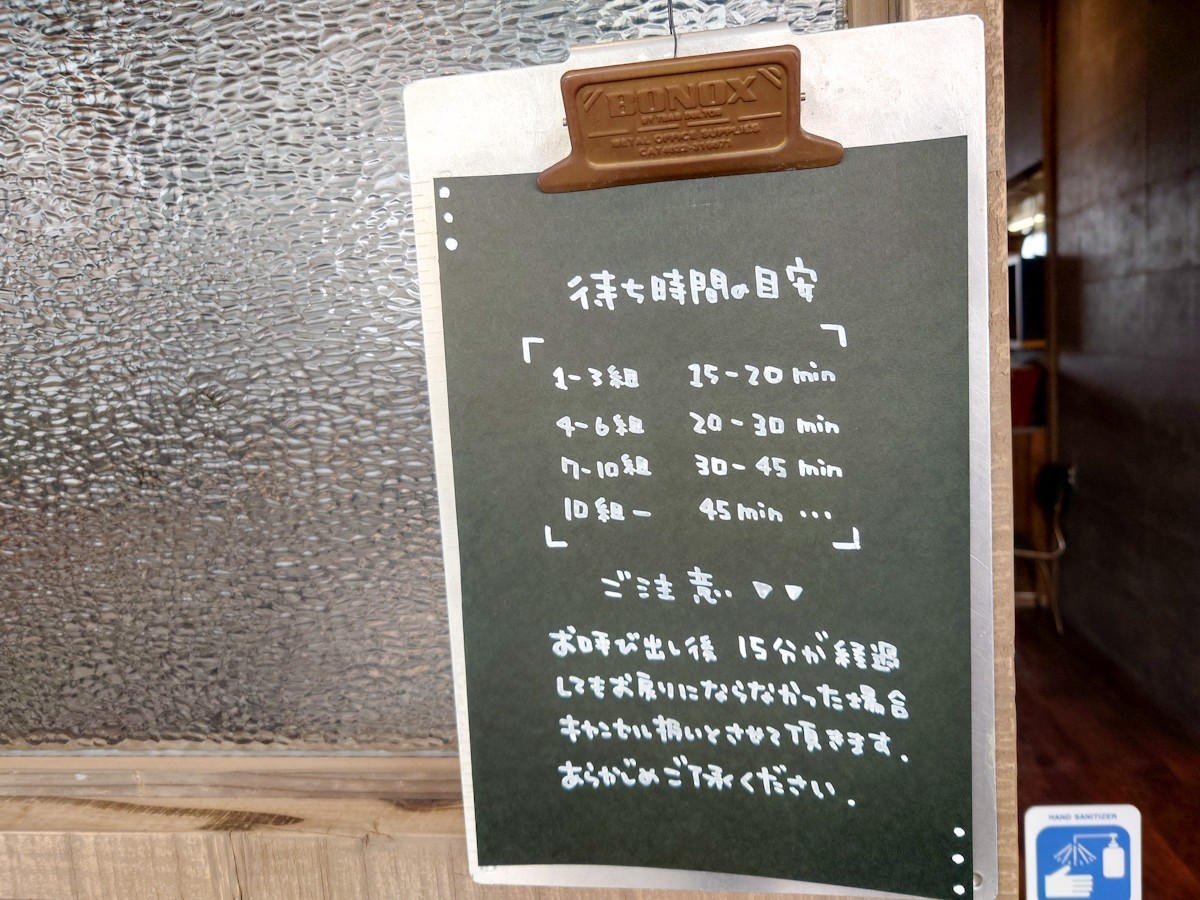 BONOX
METAL OFFICE SUPPLIES
待ち時間の目安
1-3組 15-20 min
4-6組 20-30 min
7-10組 30-45 min
10組ー 45min ...
ご注意
お呼び出し後 15分が経過
してもお戻りにならなかった場合
キャンセル扱いとさせて頂きます.
あらかじめご了承ください.
HAND SANITIZER